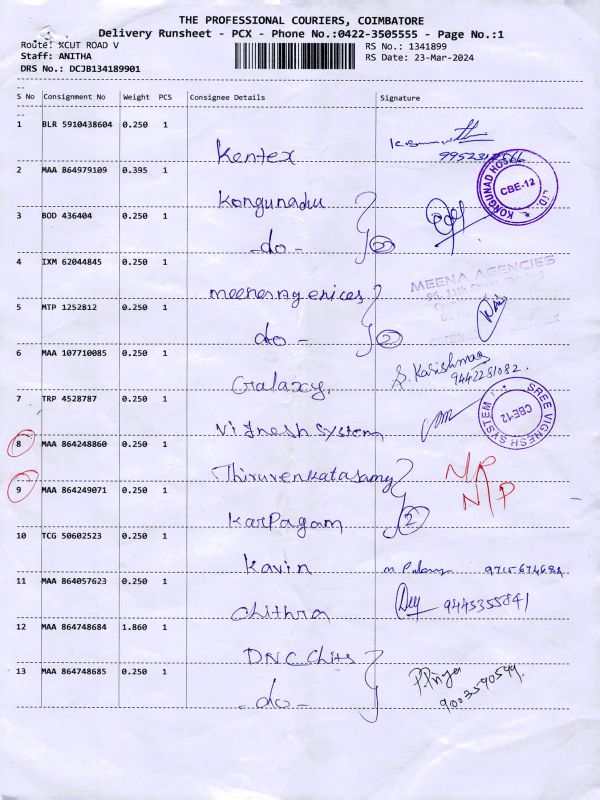 THE PROFESSIONAL COURIERS, COIMBATORE
Delivery Runsheet - PCX - Phone No.:0422-3505555 - Page No.:1
Route: XCUT ROAD V
RS No.: 1341899
Staff: ANITHA
RS Date: 23-Mar-2024
DRS No.: DCJB134189901
S No Consignment No Weight PCS Consignee Details Signature
1 BLR 5910438604 0.250 1
Kentex
2 MAA 864979109 0.395 1
KONGUNAD HOS
CBE-12
Kongunadu
3 BOD 436404 0.250 1
-do- 2
4 IXM 62044845 0.250 1
MEENA AGENCIES
meenaragencies
5 MTP 1252812 0.250 1
do- 2
6 MAA 107710085 0.250 1
S. Karishmaa
9442251082.
Galaxy,
7 TRP 4528787 0.250 1
SREE VIGNESH SYSTEM
CBE-12
Vignesh System
8 MAA 864248860 0.250 1
Thiruvenkatasamy N/P
9 MAA 864249071 0.250 1
N/P
Karpagam 2
10 TCG 50602523 0.250 1
Kavin
11 MAA 864057623 0.250 1
9443355841
Chithra
12 MAA 864748684 1.860 1
DNC Chits
13 MAA 864748685 0.250 1
P. Priya
-do-
9003590599.